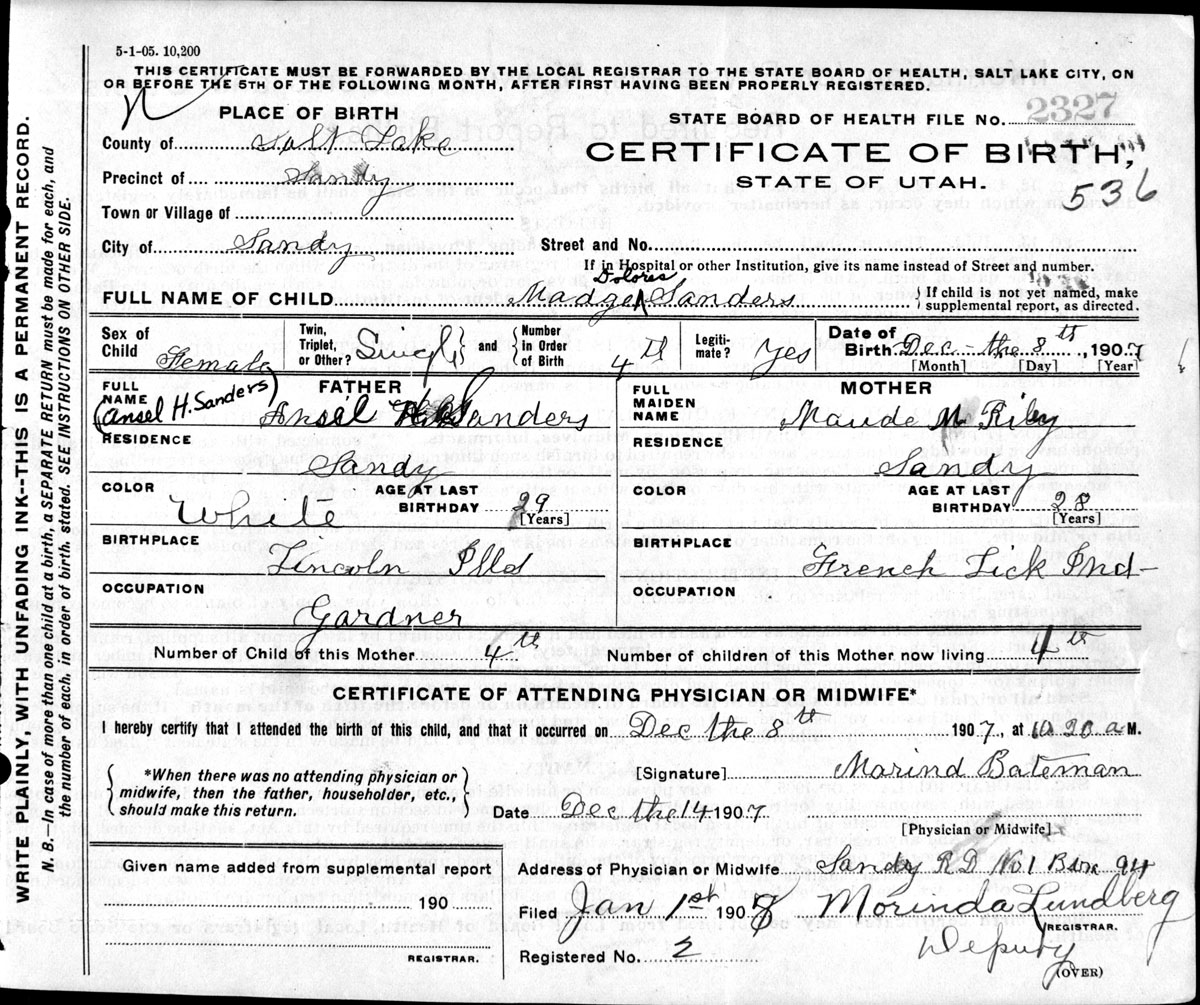 5-1-05. 10,200
THIS CERTIFICATE MUST BE FORWARDED BY THE LOCAL REGISTRAR TO THE STATE BOARD OF HEALTH, SALT LAKE CITY, ON
OR BEFORE THE 5TH OF THE FOLLOWING MONTH, AFTER FIRST HAVING BEEN PROPERLY REGISTERED.
N
PLACE OF BIRTH
STATE BOARD OF HEALTH FILE No. 2327
County of Salt Lake
CERTIFICATE OF BIRTH,
Precinct of Sandy
STATE OF UTAH.
536
Town or Village of
City of Sandy
Street and No.
If in Hospital or other Institution, give its name instead of Street and number.
Dolores
FULL NAME OF CHILD Madge Sanders
{ If child is not yet named, make
supplemental report, as directed.
Sex of Child Female
Twin, Triplet, or Other? Singl } and { Number in Order of Birth 4th
Legiti-mate? Yes
Date of Birth Dec - the 8th, 1907
[Month] [Day] [Year]
FULL NAME FATHER
(Ansel H. Sanders) Ansel Sanders
FULL MAIDEN NAME MOTHER
Maude M Riley
RESIDENCE Sandy
RESIDENCE Sandy
COLOR White
AGE AT LAST BIRTHDAY 29 [Years]
COLOR
AGE AT LAST BIRTHDAY 28 [Years]
BIRTHPLACE Lincoln Ills
BIRTHPLACE French Lick Ind-
OCCUPATION Gardner
OCCUPATION
Number of Child of this Mother 4th
Number of children of this Mother now living 4th
CERTIFICATE OF ATTENDING PHYSICIAN OR MIDWIFE*
I hereby certify that I attended the birth of this child, and that it occurred on Dec the 8th 1907, at 20 a M.
{ *When there was no attending physician or
midwife, then the father, householder, etc.,
should make this return. }
[Signature] Morind Bateman
Date Dec the 14 1907
[Physician or Midwife]
Given name added from supplemental report
190
REGISTRAR.
Address of Physician or Midwife Sandy R D No 1 Box 94
Filed Jan 1st 190 Morinda Lundberg
REGISTRAR.
Registered No. 2
Deputy
(OVER)
WRITE PLAINLY, WITH UNFADING INK--THIS IS A PERMANENT RECORD.
N. B.—In case of more than one child at a birth, a SEPARATE RETURN must be made for each, and
the number of each, in order of birth, stated. SEE INSTRUCTIONS ON OTHER SIDE.